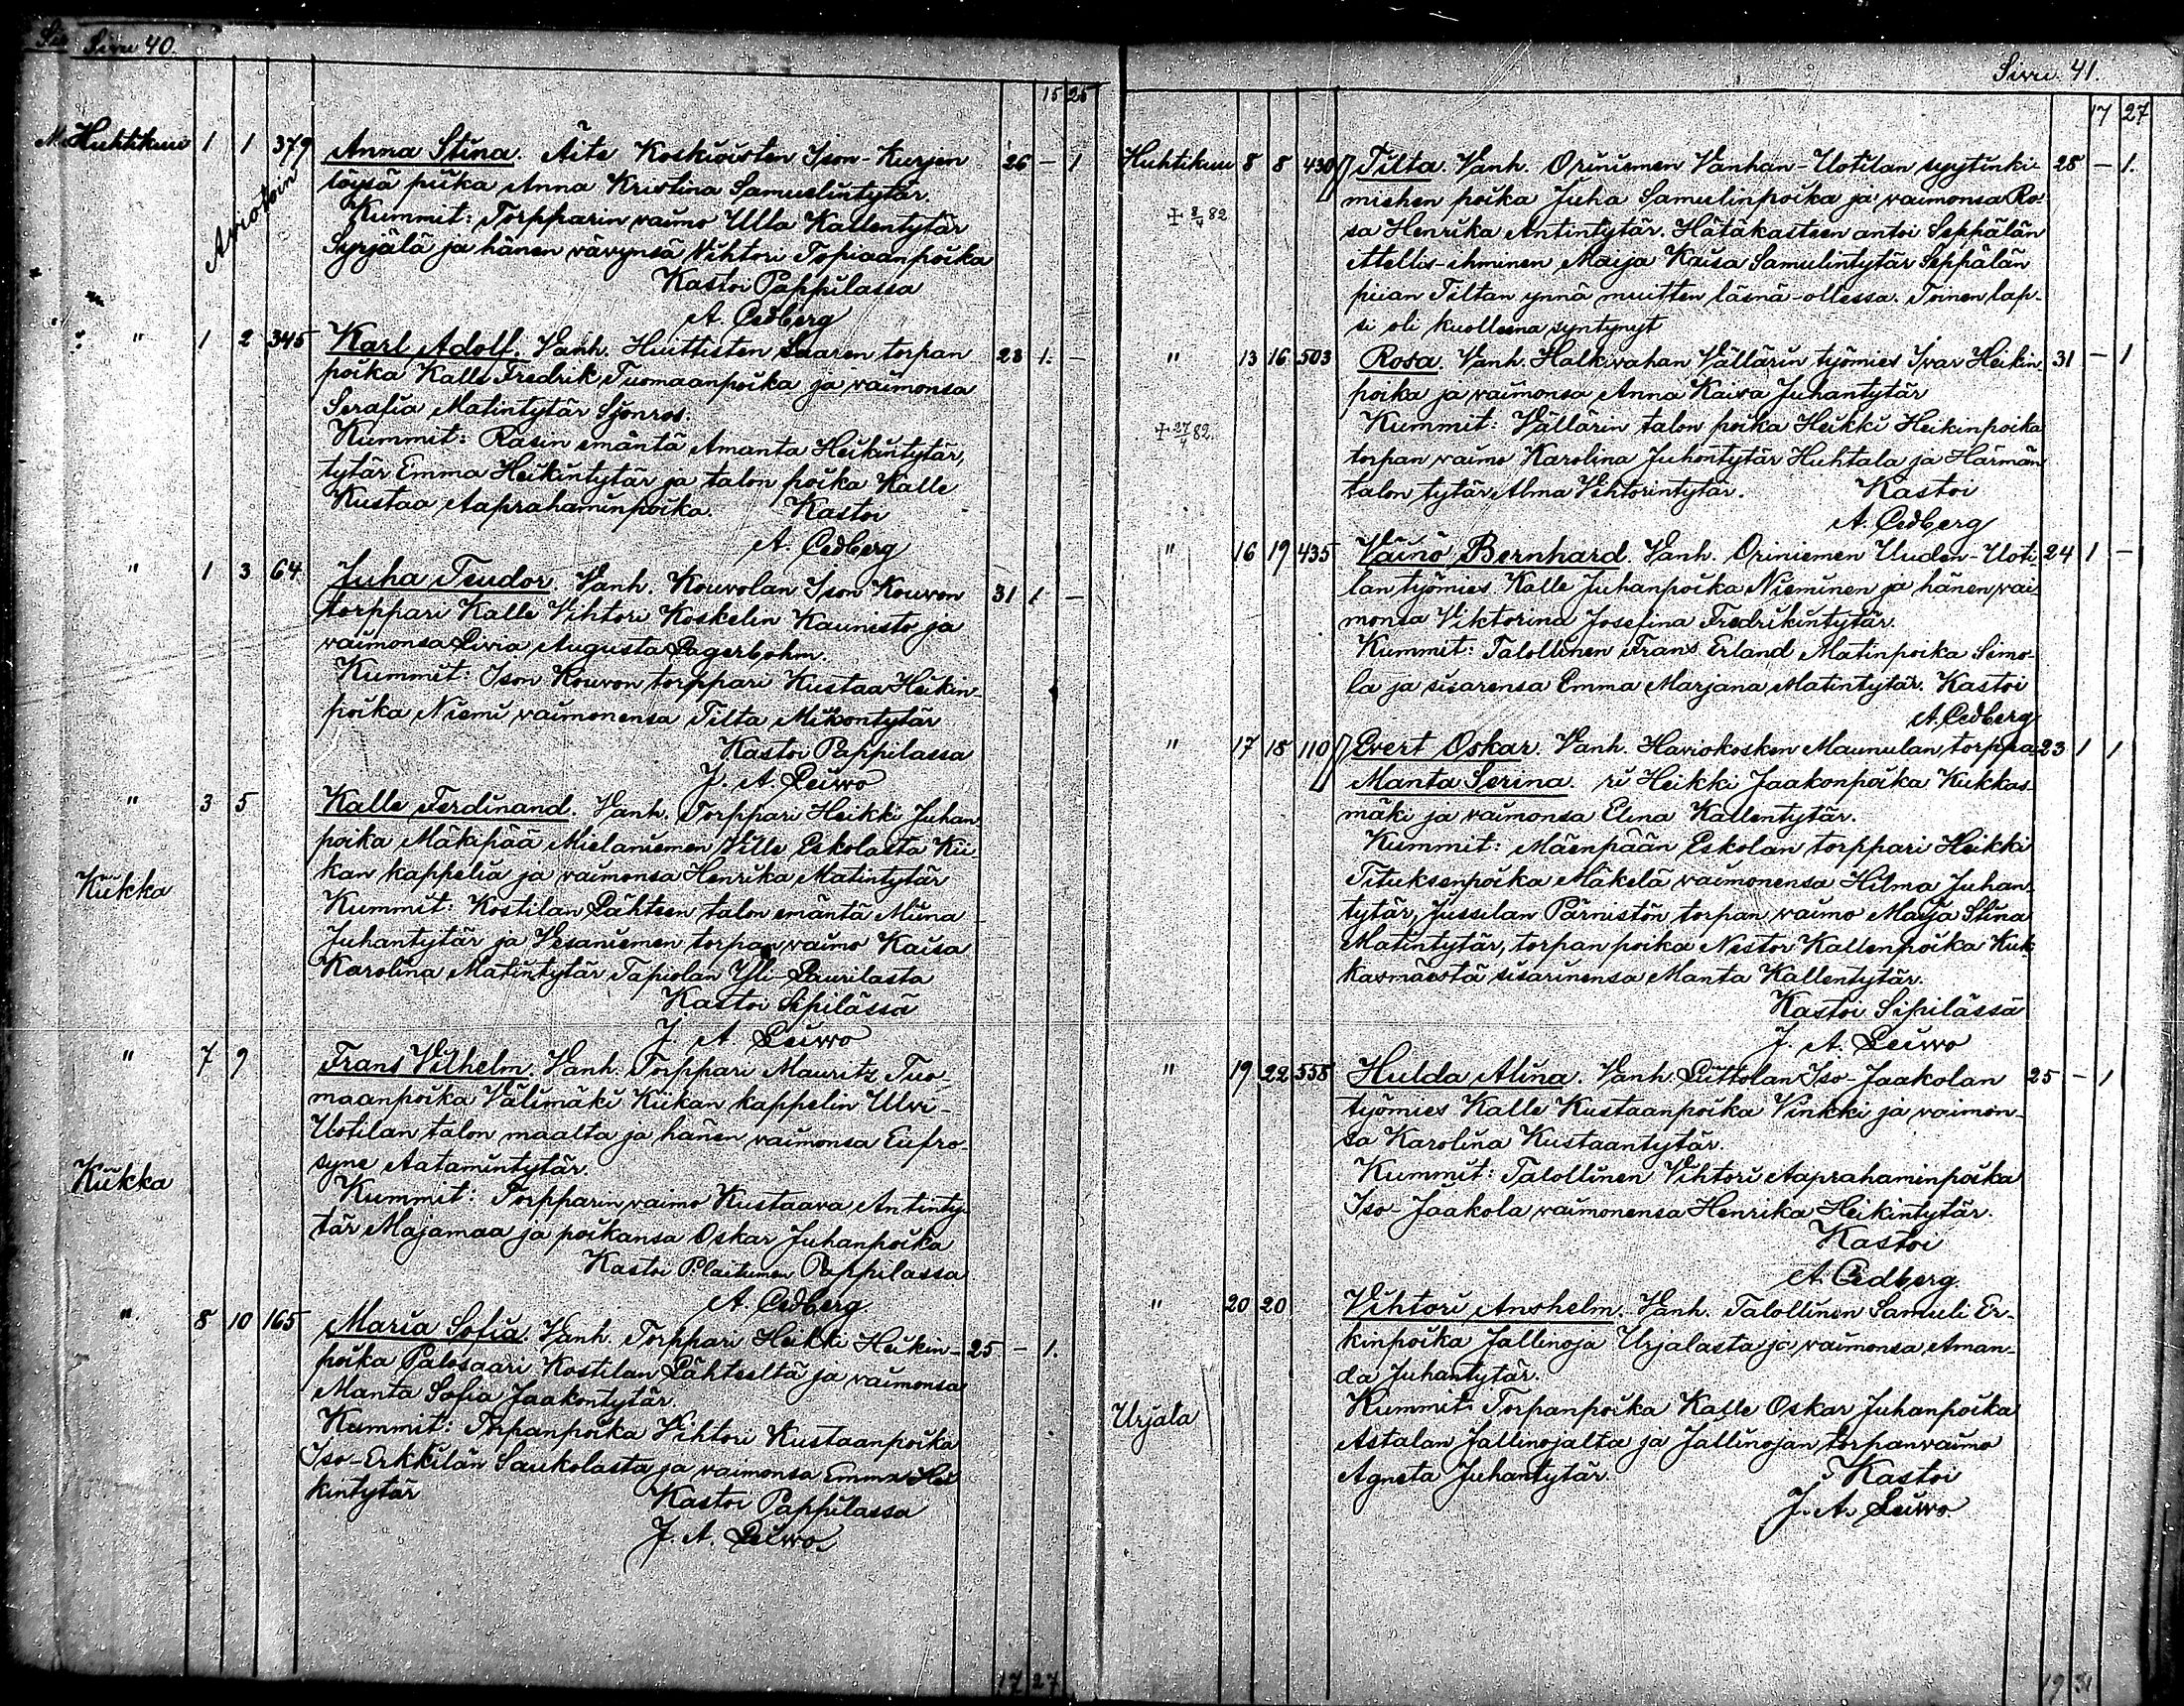 Sivu 40.
15 25
Huhtikuu 1 1 379 Anna Stina. Äite Koskioisten Ison-Kurjen 26 – 1
Aviotoin
löysä piika Anna Kristina Samuelintytär.
Kummit: Torpparin vaimo Ulla Kallentytär
Syrjälä ja hänen vävynsä Vihtori Topiaanpoika
Kastoi Pappilassa
A. Cedberg
" 1 2 345 Karl Adolf. Vanh. Huittisten Saaren torpan 23 1. –
poika Kalle Fredrik Tuomaanpoika ja vaimonsa
Serafia Matintytär Sjönros.
Kummit: Rasin emäntä Amanta Heikintytär,
tytär Emma Heikintytär ja talon poika Kalle
Kustaa Aaprahaminpoika. Kastoi
A. Cedberg
" 1 3 64 Juha Teudor. Vanh. Kouvolan Ison Kouvon 31 1 –
torppari Kalle Vihtori Koskelin Kaunisto ja
vaimonsa Livia Augusta Lagerbohm.
Kummit: Ison Kouvon torppari Kustaa Heikin-
poika Niemi vaimonensa Tilta Mikontytär
Kastoi Pappilassa
J. A. Leiwo
" 3 5 Kalle Ferdinand. Vanh. Torppari Heikki Juhan
poika Mäkipää Mielaniemen Ville Eskolasta Kii-
Kiikka
kan kappelia ja vaimonsa Henrika Matintytär
Kummit: Kostilan Lähteen talon emäntä Miina
Juhantytär ja Vesaniemen torpan vaimo Kaisa
Karolina Matintytär Tapiolan Yli-Laurilasta
Kastoi Sipilässä
J. A. Leiwo
" 7 9 Frans Vilhelm. Vanh. Torppari Mauritz Tuo-
maanpoika Välimäki Kiikan kappelin Ulvi-
Uotilan talon maalta ja hänen vaimonsa Eufro-
syne Aatamintytär.
Kiikka
Kummit: Torpparin vaimo Kustaava Antinty-
tär Majamaa ja poikansa Oskar Juhanpoika
Kastoi P.laitumen Pappilassa
A. Cedberg
" 8 10 165 Maria Sofia. Vanh. Torppari Heikki Heikin- 25 – 1.
poika Palosaari Kostilan Lähteeltä ja vaimonsa
Manta Sofia Jaakontytär.
Kummit: Torpanpoika Vihtori Kustaanpoika
Iso-Erkkilän Saukolasta ja vaimonsa Emma Hei
kintytär Kastoi Pappilassa
J. A. Leiwo
17 27
Sivu 41.
17 27
Huhtikuu 8 8 430 Tilta. Vanh. Oriniemen Vanhan-Uotilan syytinki- 28 – 1.
miehen poika Juha Samulinpoika ja vaimonsa Ro-
+ 8/4 82
sa Henrika Antintytär. Hätäkasteen antoi Seppälän
Attellis-ihminen Maija Kaisa Samulintytär Seppälän
piian Tiltan ynnä muitten läsnä-ollessa. Toinen lap-
si oli kuolleena syntynyt
" 13 16 503 Rosa. Vanh. Halkivahan Vällärin työmies Ivar Heikin 31 – 1
poika ja vaimonsa Anna Kaiva Juhantytär
+ 27/4 82.
Kummit: Vällärin talon poika Heikki Heikinpoika
torpan vaimo Karolina Juhontytär Huhtala ja Härmän
talon tytär Alma Vihtorintytär. Kastoi
A. Cedberg
" 16 19 435 Väinö Bernhard. Vanh. Oriniemen Uuden-Uoti- 24 1 –
lan työmies Kalle Juhanpoika Nieminen ja hänen vai-
monsa Viktorina Josefina Fredrikintytär.
Kummit: Talollinen Frans Erland Matinpoika Simo-
la ja sisarensa Emma Marjana Matintytär. Kastoi
A. Cedberg
" 17 18 110 Evert Oskar. Vanh. Haviokosken Maunulan torppa- 23 1 1
Manta Serina. ri Heikki Jaakonpoika Kukkas-
mäki ja vaimonsa Elina Kallentytär.
Kummit: Mäenpään Eskolan torppari Heikki
Tituksenpoika Mäkelä vaimonensa Hilma Juhan-
tytär, Jussilan Pärnistön torpan vaimo Maija Stina
Matintytär, torpan poika Nestor Kallenpoika Kuk-
kasmäestä sisarinensa Manta Kallentytär.
Kastoi Sipilässä
J. A. Leiwo
" 19 22 558 Hulda Alina. Vanh. Liittolan Iso-Jaakolan 25 – 1
työmies Kalle Kustaanpoika Vinkki ja vaimon-
sa Karolina Kustaantytär.
Kummit: Talollinen Vihtori Aaprahaminpoika
Iso-Jaakola vaimonensa Henrika Heikintytär.
Kastoi
A. Cedberg.
" 20 20 Vihtori Anshelm. Vanh. Talollinen Samuli Er-
kinpoika Jallinoja Urjalasta ja vaimonsa Aman-
da Juhantytär.
Urjala
Kummit: Torpanpoika Kalle Oskar Juhanpoika
Astalan Jallinojalta ja Jallinojan torpanvaimo
Agneta Juhantytär. Kastoi
J. A. Leiwo.
19 31